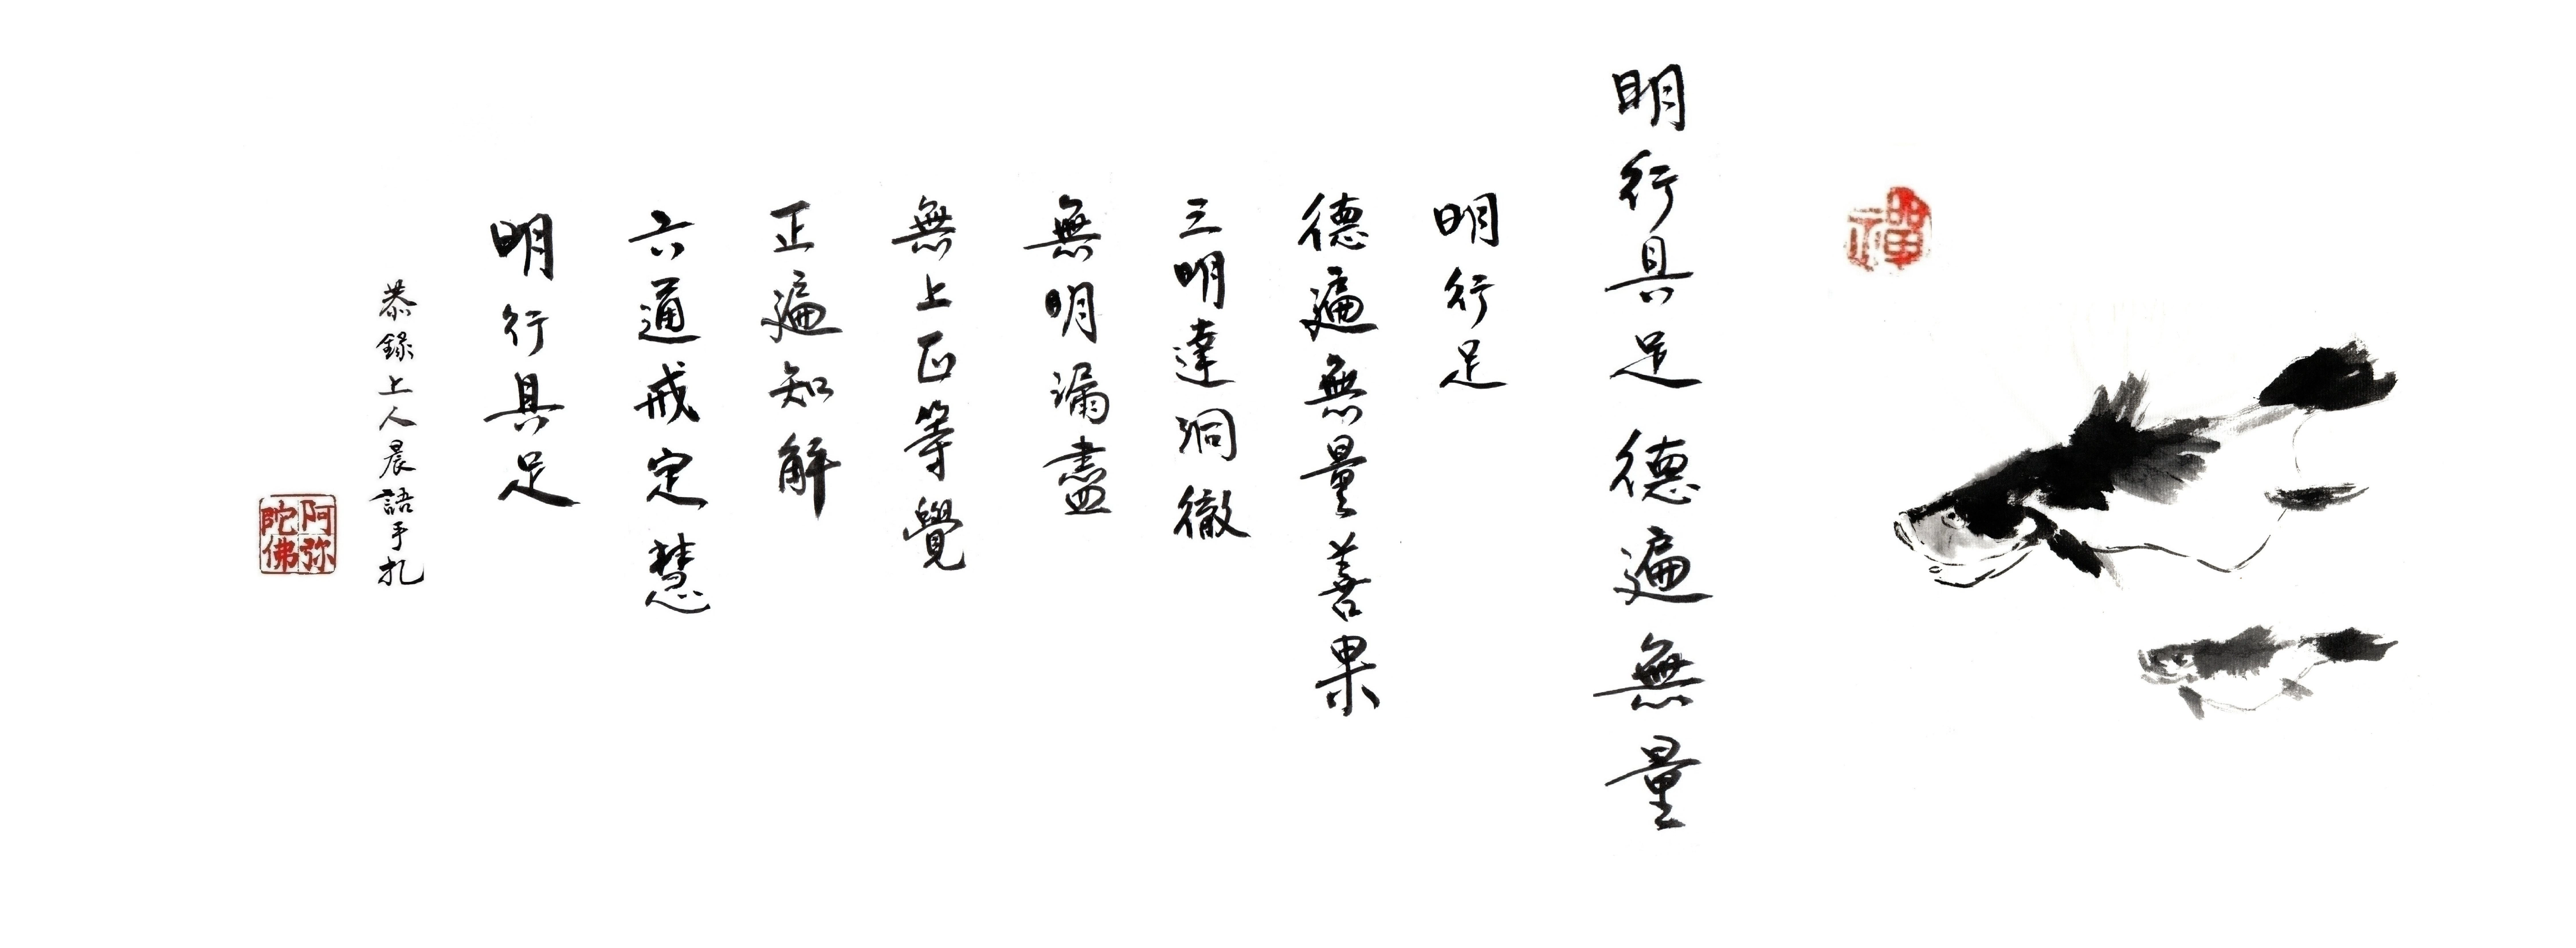 禪
明行具足 德遍無量
明行足
德遍無量善果
三明達洞徹
無明漏盡
無上正等覺
正遍知解
六通戒定慧
明行具足
恭錄上人晨語手扎
阿弥陀佛